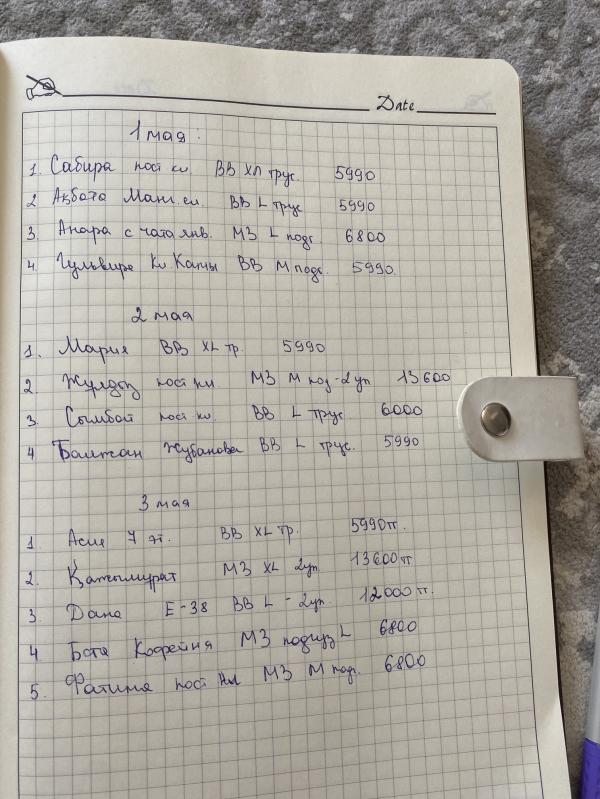 Date
1 мая:
1. Сабира пост кл. BB ХЛ трус. 5990
2 Ақбота Манг. ел. BB L трус 5990
3. Анара с чата янв. МЗ L подг. 6800
4. Гульвире Кл Каты BB М подг. 5990.
2 мая
1. Мария BB XL тр. 5990
2 Жулдыз пост кл МЗ М под - 2 уп 13600
3. Сымбат пост кл. BB L трус 6000
4 Балжан Жубанова BB L трус. 5990
3 мая
1. Асия 7 эт. BB XL тр. 5990тг.
2. Қажымурат МЗ XL 2уп. 13600тг
3 Дана Е-38 BB L - 2уп. 12000тг.
4 Бота Кофейня МЗ подгуз L 6800
5. Фатима пост кл МЗ М под. 6800